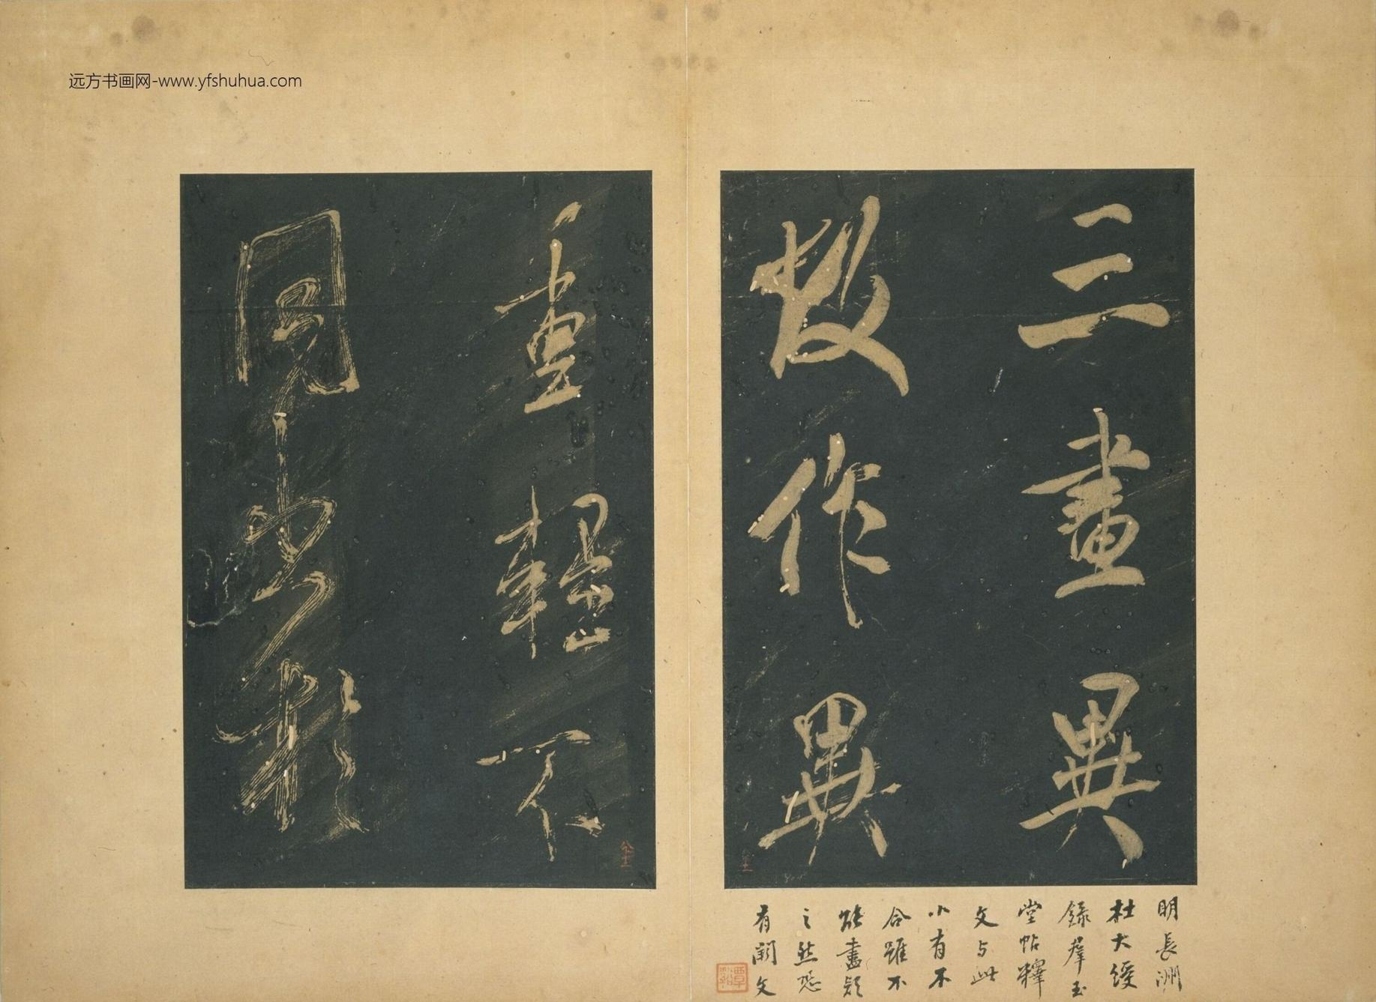 远方书画网-www.yfshuhua.com
三畫異
故作異
重輕不
同出於
明長洲
杜大綬
錄羣玉
堂帖釋
文与此
小有不
合雖不
能盡
之然恐
有闕文